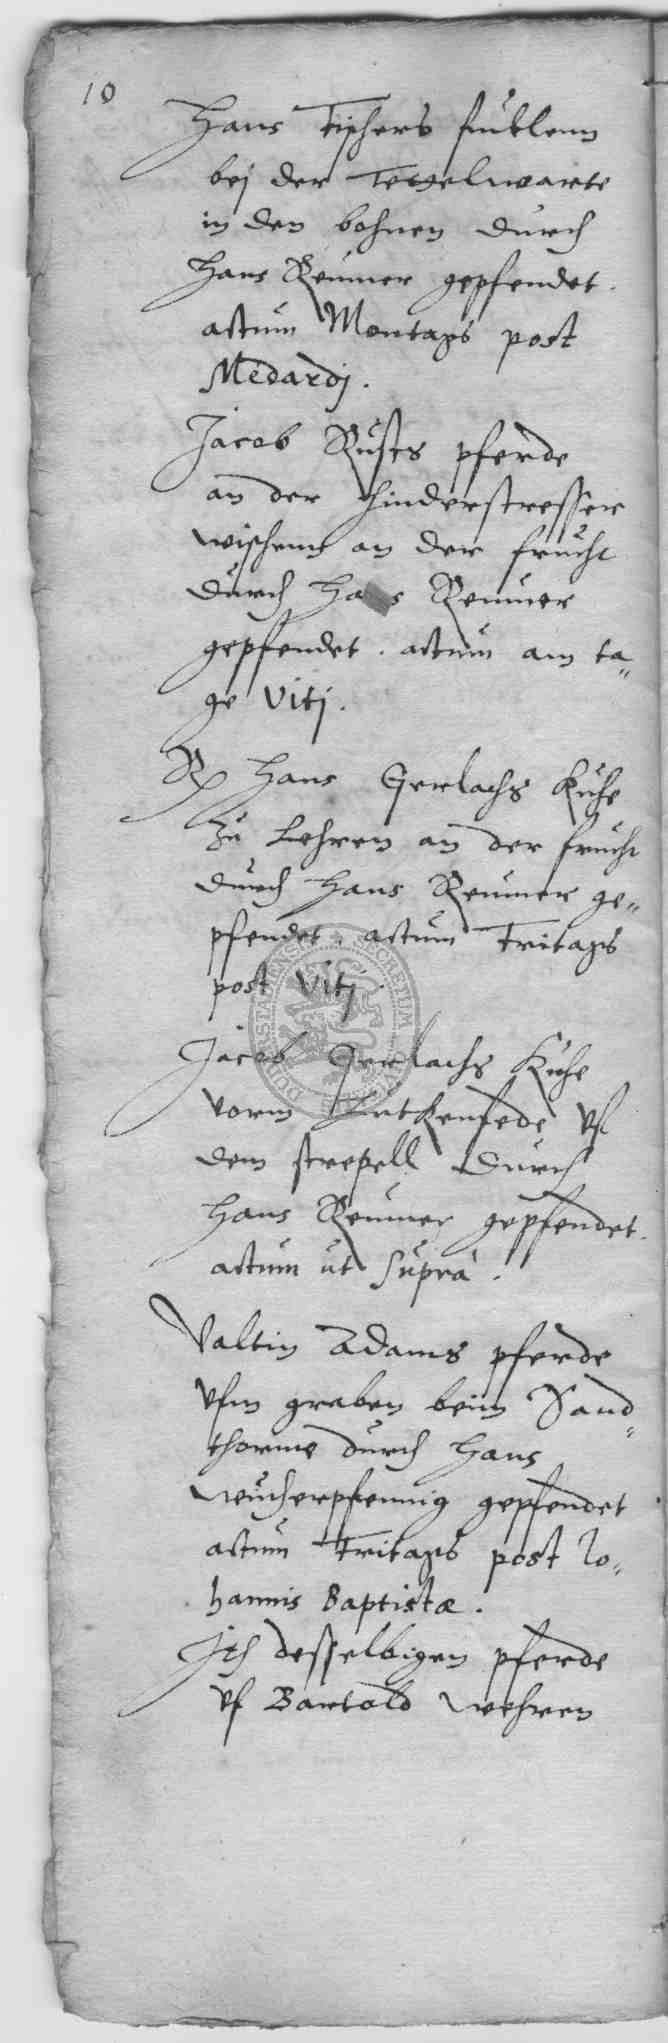 10
Hans Fischers fullenn
bej der Tegelwarte
in den bohnen durch
Hans Reumer gepfendet.
actum Montags post
Medardj.
Jacob Rusts pferde
an der hinderstresser
wischenn an der frucht
durch Hans Reumer
gepfendet. actum am ta-
ge Vitj.
Hans Gerlachs Kuhe
zu Lehren an der frucht
durch Hans Reumer ge-
pfendet. actum Fritags
post Vitj.
Jacob Gerlachs Kuhe
vorm uf
dem strepell durch
Hans Reumer gepfendet.
actum ut supra.
Valtin Adams pferde
ufm graben beim Sand-
thorme durch Hans
Wucherpfennig gepfendet
actum Fritags post Jo-
hannis Baptistæ.
Jt desselbigen pferde
uf Bartold Wehren